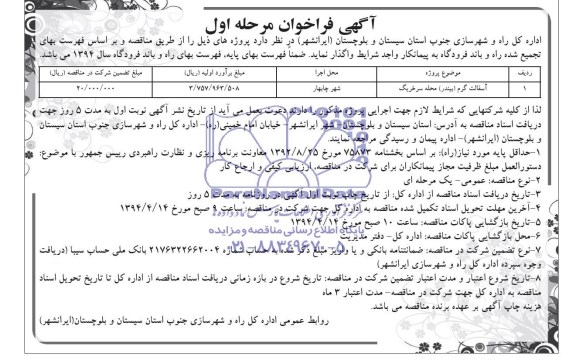 آگهی فراخوان مرحله اول
اداره کل راه و شهرسازی جنوب استان سیستان و بلوچستان (ایرانشهر) در نظر دارد پروژه های ذیل را از طریق مناقصه و بر اساس فهرست بهای
تجمیع شده راه و باند فرودگاه به پیمانکار واجد شرایط واگذار نماید. ضمناً فهرست بهای پایه، فهرست بهای راه و باند فرودگاه سال ۱۳۹۴ می باشد.
ردیف موضوع پروژه محل اجرا مبلغ برآورد اولیه (ریال) مبلغ تضمین شرکت در مناقصه (ریال)
۱ آسفالت گرم (بیندر) محله سرخریگ شهر چابهار ۳/۷۵۷/۹۶۳/۵۰۸ ۲۰/۰۰۰/۰۰۰
لذا از کلیه شرکتهایی که شرایط لازم جهت اجرایی پروژه مذکور را دارند دعوت بعمل می آید از تاریخ نشر آگهی نوبت اول به مدت ۵ روز جهت
دریافت اسناد مناقصه به آدرس: استان سیستان و بلوچستان- شهر ایرانشهر- خیابان امام خمینی(ره)- اداره کل راه و شهرسازی جنوب استان سیستان
و بلوچستان (ایرانشهر)- اداره پیمان و رسیدگی مراجعه نمایند.
۱-حداقل پایه مورد نیاز(راه): بر اساس بخشنامه ۷۵۸۷۳ مورخ ۱۳۹۲/۸/۲۵ معاونت برنامه ریزی و نظارت راهبردی رییس جمهور با موضوع:
دستورالعمل مبلغ ظرفیت مجاز پیمانکاران برای شرکت در مناقصه، ارزیابی کیفی و ارجاع کار
۲-نوع مناقصه: عمومی- یک مرحله ای
۳-تاریخ دریافت اسناد مناقصه از اداره کل: از تاریخ چاپ نوبت اول آگهی در روزنامه به مدت ۵ روز
۴-آخرین مهلت تحویل اسناد تکمیل شده مناقصه به اداره کل جهت شرکت در مناقصه: ساعت ۹ صبح مورخ ۱۳۹۴/۴/۱۴
۵-تاریخ بازگشایی پاکات مناقصه: ساعت ۱۰ صبح مورخ ۱۳۹۴/۴/۱۴
۶-محل بازگشایی پاکات مناقصه: اداره کل- دفتر مدیریت
۷-نوع تضمین شرکت در مناقصه: ضمانتنامه بانکی و یا واریز مبلغ ذکر شده به حساب شماره ۲۱۷۶۳۲۲۶۶۲۰۰۴ بانک ملی حساب سیبا (دریافت
وجوه سپرده اداره کل راه و شهرسازی ایرانشهر)
۸-تاریخ شروع اعتبار و مدت اعتبار تضمین شرکت در مناقصه: تاریخ شروع در بازه زمانی دریافت اسناد مناقصه از اداره کل تا تاریخ تحویل اسناد
مناقصه به اداره کل جهت شرکت در مناقصه- مدت اعتبار ۳ ماه
هزینه چاپ آگهی بر عهده برنده مناقصه می باشد.
روابط عمومی اداره کل راه و شهرسازی جنوب استان سیستان و بلوچستان(ایرانشهر)
پایگاه اطلاع رسانی مناقصه و مزایده
۰۲۱-۸۸۳۴۹۶۷۰-۵